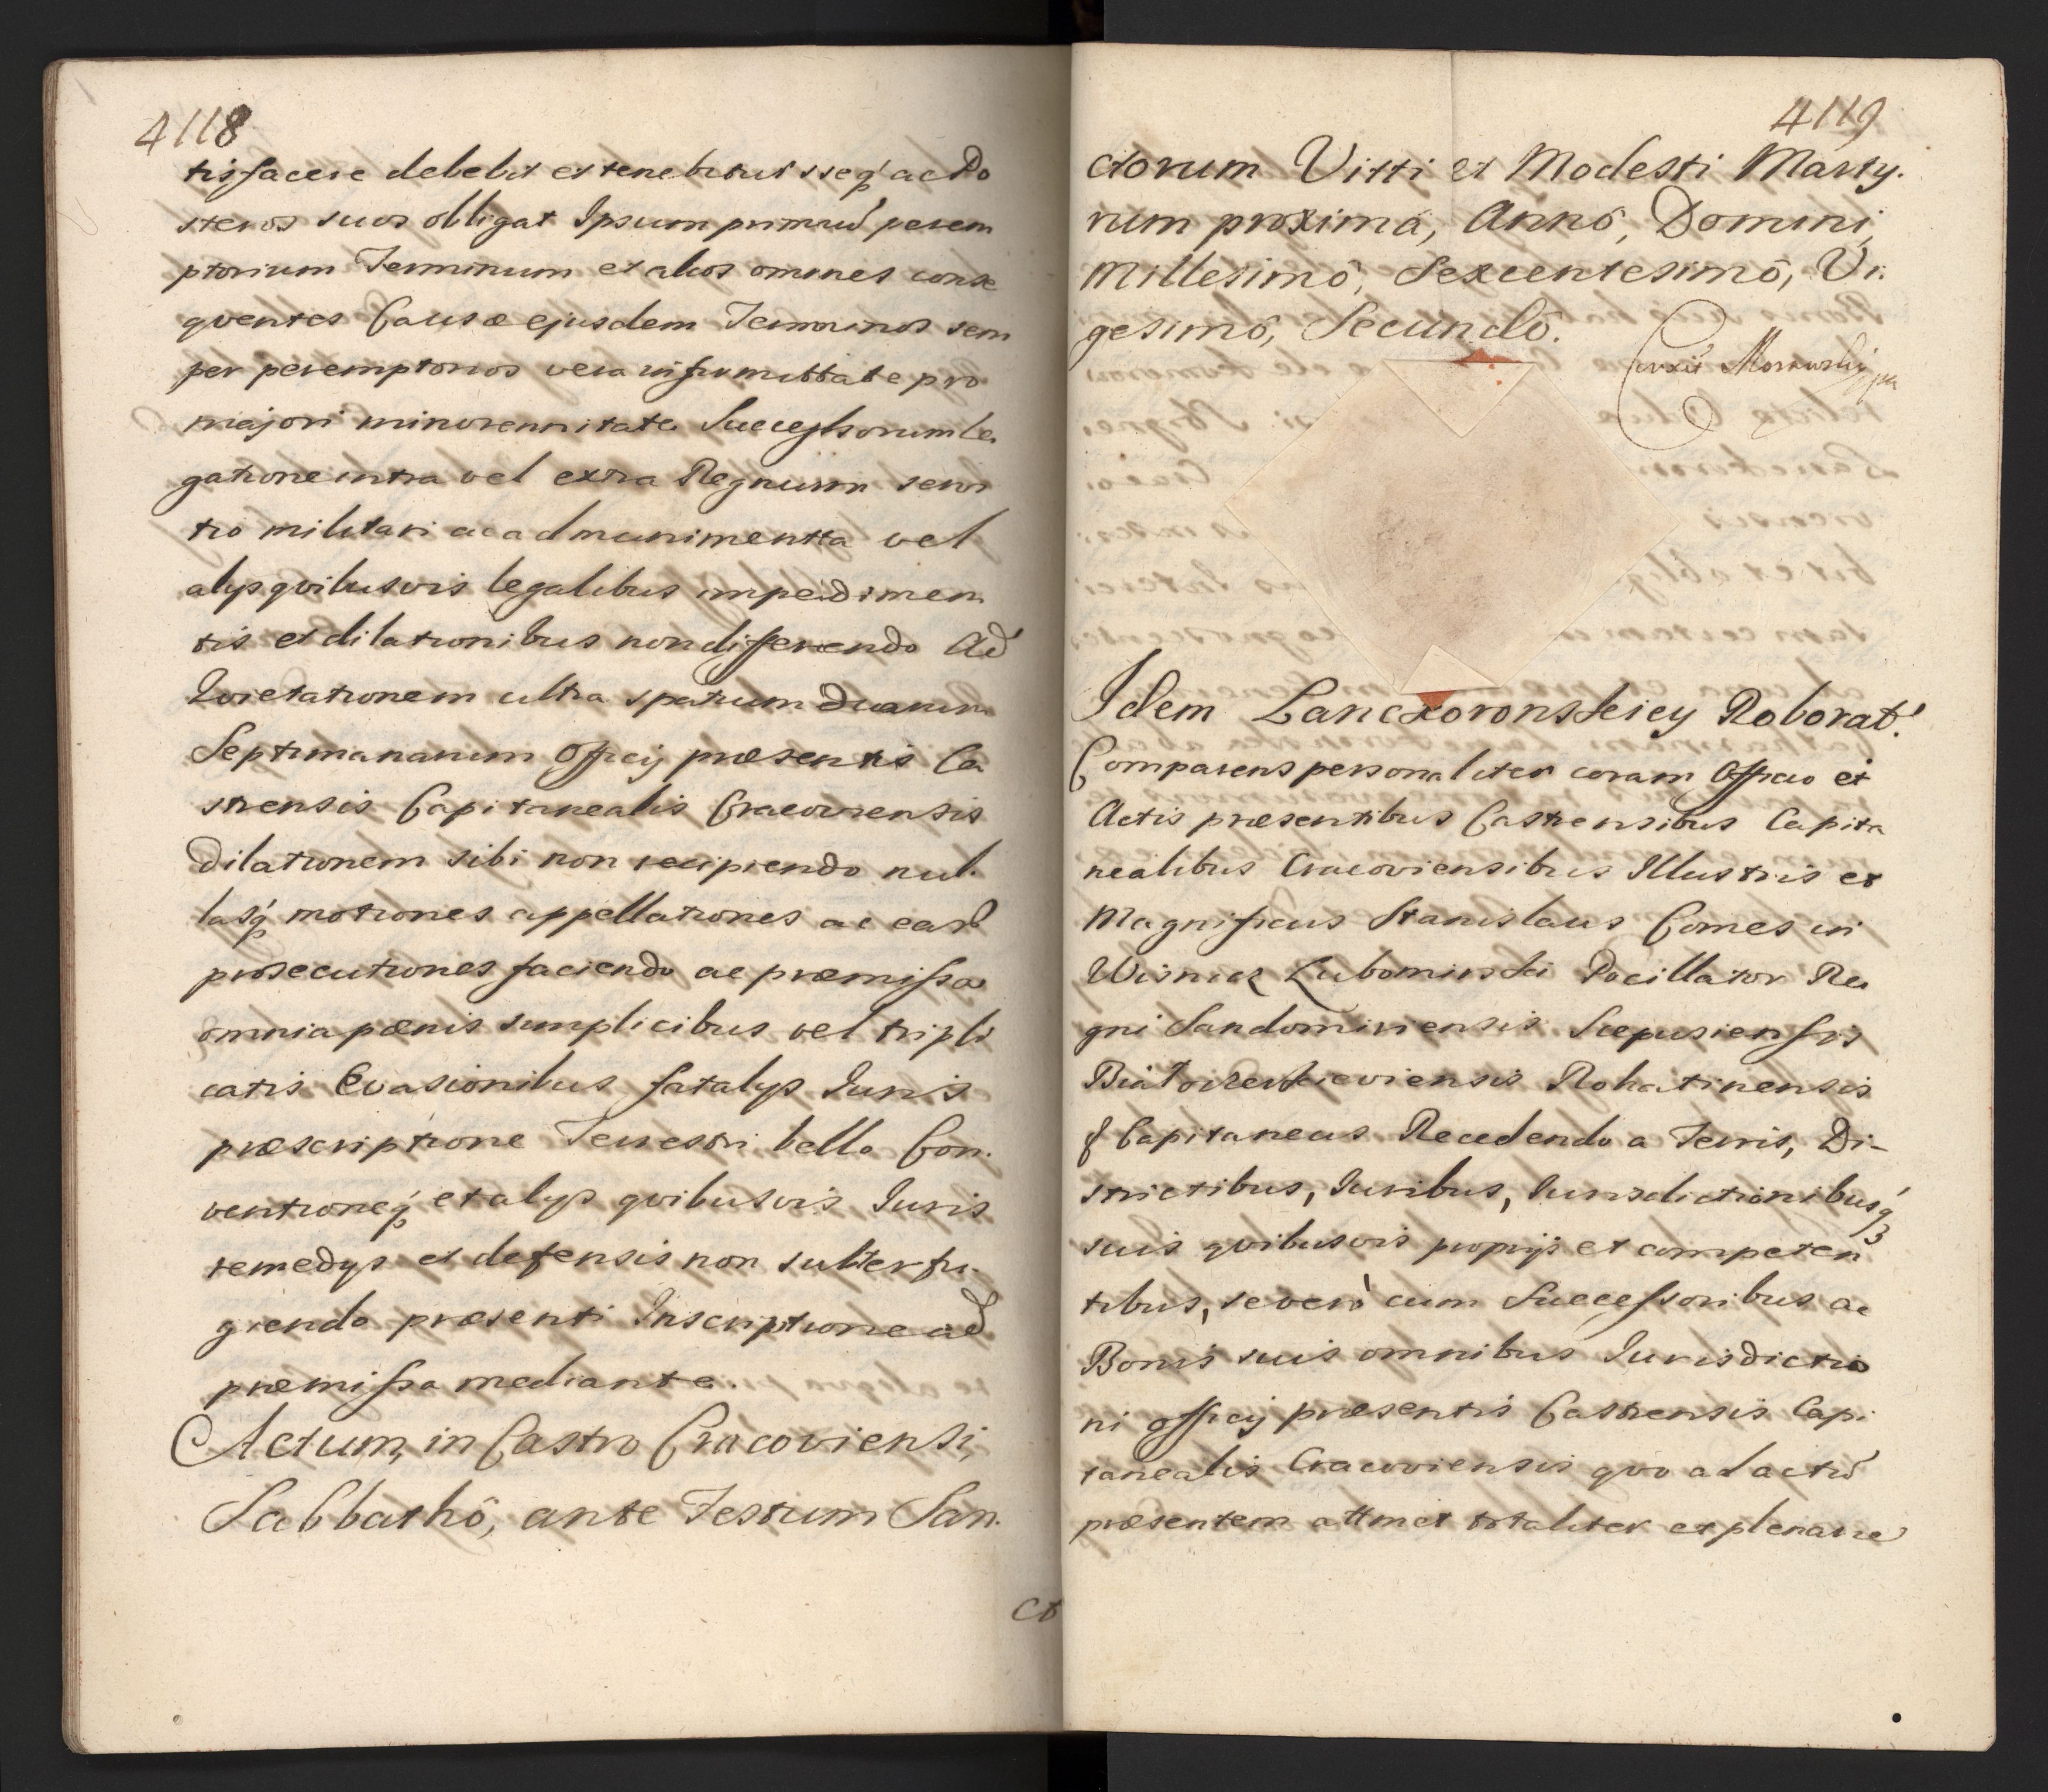 4118
tisfacere debebit et tenebitur seq́ ac Po
steros suos obligat Ipsum primū perem
ptorium Terminum et alios omnes conse
qventes Causæ ejusdem Terminos sem
per peremptorios vera infirmittate pro
majori minorennitate Successorum le
gatione intra vel extra Regnum servi
tio militari ac admunimentta vel
alijs qvibusvis legalibus impedimen
tis et dilationibus non differendo Ad
Qvietationem ultra spatium duarum
Septimanarum Officij præsentis Ca
strensis Capitanealis Cracoviensis
dilationem sibi non recipiendo nul
lasq́ motiones appellationes ac earū
prosecutiones faciendo ac præmissa
omnia pænis simplicibus vel tripli
catis Evasionibus fatalijs Iuris
præscriptione Terrestri bello Con
ventioneq́ et alijs qvibusvis Iuris
remedijs et defensis non subterfu
giendo præsenti Inscriptione ad
præmissa mediante.
Actum, in Castro Cracoviensi,
Sabbathô, ante Festum San.
ct
4119
ctorum Vitti et Modesti Marty.
rum proximâ, Annô, Domini,
Millesimô, Sexcentesimô, Vi.
gesimô, Secundô.
Idem Lanckoronskiey Roborat.
Comparens personaliter coram Officio et
Actis præsentibus Castrensibus Capita
nealibus Cracoviensibus Illustris et
Magnificus Stanislaus Comes in
Wisnicz Lubomirski Pocillator Re
gni Sandomiriensis Scepusiensis
Białocerkieviensis Rohatinensis
& Capitaneus Recedendo a Terris, Di-
strictibus, Iuribus, Iurisdictionibusq́3
suis qvibusvis proprijs et competen
tibus, se verò cum Successoribus ac
Bonis suis omnibus Iurisdictio
ni officij præsentis Castrensis Capi
tanealis Cracoviensis qvo ad actū
præsentem attinet totaliter et plenarie